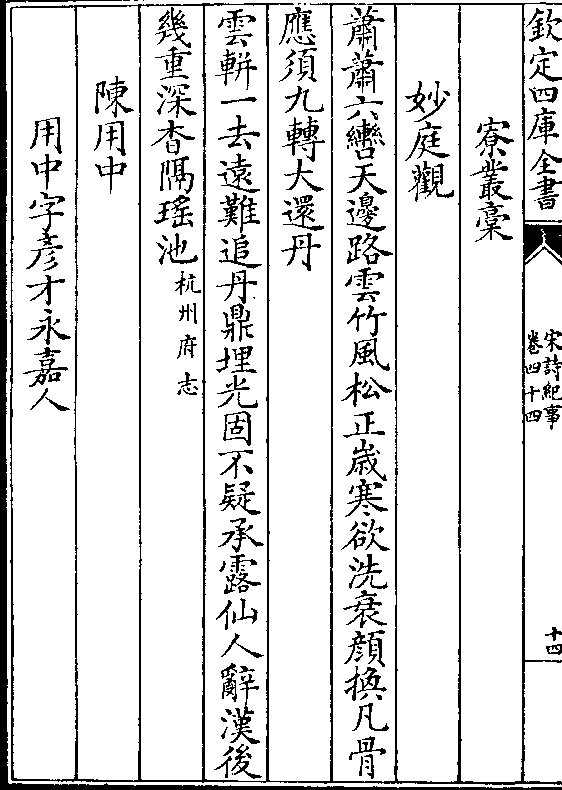 欽定四庫全書
宋詩紀事
卷四十四
十四
寮叢稾
妙庭觀
蕭蕭六轡天邊路雲竹風松正歲寒欲洗衰顔換凡骨
應須九轉大還丹
雲輧一去遠難追丹鼎埋光固不疑承露仙人辭漢後
幾重深杳隔瑤池杭州府志
陳用中
用中字彥才永嘉人